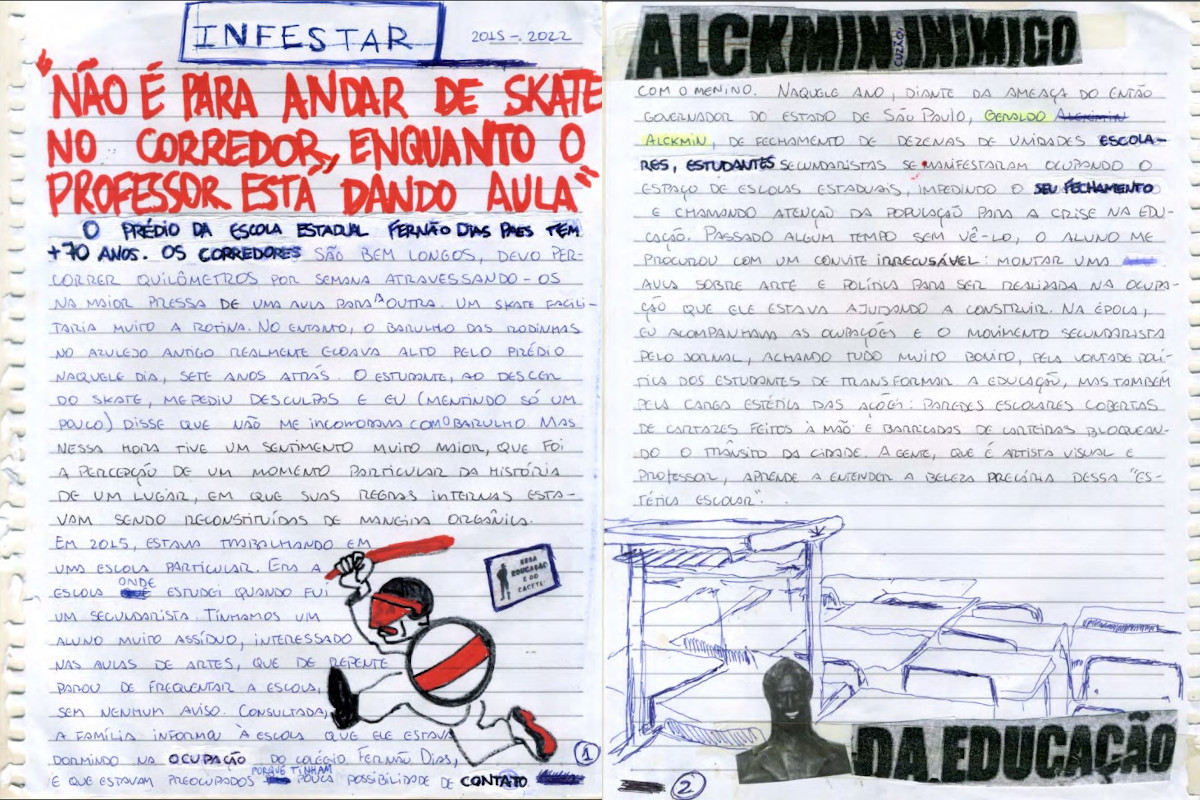 INFESTAR
2015-2022
"NÃO É PARA ANDAR DE SKATE
NO CORREDOR, ENQUANTO O
PROFESSOR ESTÁ DANDO AULA"
O PRÉDIO DA ESCOLA ESTADUAL FERNÃO DIAS PAES TÊM
+70 ANOS. OS CORREDORES SÃO BEM LONGOS, DEVO PER-
CORRER QUILÔMETROS POR SEMANA ATRAVESSANDO-OS
NA MAIOR PRESSA DE UMA AULA PARA A OUTRA. UM SKATE FACILI-
TARIA MUITO A ROTINA. NO ENTANTO, O BARULHO DAS RODINHAS
NO AZULEJO ANTIGO REALMENTE ECOAVA ALTO PELO PRÉDIO
NAQUELE DIA, SETE ANOS ATRÁS. O ESTUDANTE, AO DESCER
DO SKATE, ME PEDIU DESCULPAS E EU (MENTINDO SÓ UM
POUCO) DISSE QUE NÃO ME INCOMODAVA COM O BARULHO. MAS
NESSA HORA TIVE UM SENTIMENTO MUITO MAIOR, QUE FOI
A PERCEPÇÃO DE UM MOMENTO PARTICULAR DA HISTÓRIA
DE UM LUGAR, EM QUE SUAS REGRAS INTERNAS ESTA-
VAM SENDO RECONSTITUÍDAS DE MANEIRA ORGÂNICA.
EM 2015, ESTAVA TRABALHANDO EM
UMA ESCOLA PARTICULAR. ERA A
ESCOLA ONDE ESTUDEI QUANDO FUI
UM SECUNDARISTA. TÍNHAMOS UM
ALUNO MUITO ASSÍDUO, INTERESSADO
NAS AULAS DE ARTES, QUE DE REPENTE
PAROU DE FREQUENTAR A ESCOLA,
SEM NENHUM AVISO. CONSULTADA,
A FAMÍLIA INFORMA À ESCOLA QUE ELE ESTAVA
DORMINDO NA OCUPAÇÃO DO COLÉGIO FERNÃO DIAS,
E QUE ESTAVAM PREOCUPADOS PORQUE TINHAM POUCA POSSIBILIDADE DE CONTATO
ESSA
EDUCAÇÃO
É DO
CACETE
1
ALCKMIN INIMIGO
CUZÃO!
COM O MENINO. NAQUELE ANO, DIANTE DA AMEAÇA DO ENTÃO
GOVERNADOR DO ESTADO DE SÃO PAULO, GERALDO ALCKIMIN
ALCKMIN, DE FECHAMENTO DE DEZENAS DE UNIDADES ESCOLA-
RES, ESTUDANTES SECUNDARISTAS SE MANIFESTARAM OCUPANDO O
ESPAÇO DE ESCOLAS ESTADUAIS, IMPEDINDO O SEU FECHAMENTO
E CHAMANDO ATENÇÃO DA POPULAÇÃO PARA A CRISE NA EDU-
CAÇÃO. PASSADO ALGUM TEMPO SEM VÊ-LO, O ALUNO ME
PROCUROU COM UM CONVITE IRRECUSÁVEL: MONTAR UMA
AULA SOBRE ARTE E POLÍTICA PARA SER REALIZADA NA OCUPA-
ÇÃO QUE ELE ESTAVA AJUDANDO A CONSTRUIR. NA ÉPOCA,
EU ACOMPANHAVA AS OCUPAÇÕES E O MOVIMENTO SECUNDARISTA
PELO JORNAL, ACHANDO TUDO MUITO BONITO, PELA VONTADE POLÍ-
TICA DOS ESTUDANTES DE TRANSFORMAR A EDUCAÇÃO, MAS TAMBÉM
PELA CARGA ESTÉTICA DAS AÇÕES: PAREDES ESCOLARES COBERTAS
DE CARTAZES FEITOS À MÃO E BARRICADAS DE CARTEIRAS BLOQUEAN-
DO O TRÂNSITO DA CIDADE. A GENTE, QUE É ARTISTA VISUAL E
PROFESSOR, APRENDE A ENTENDER A BELEZA PRECÁRIA DESSA "ES-
TÉTICA ESCOLAR".
DA EDUCAÇÃO
2